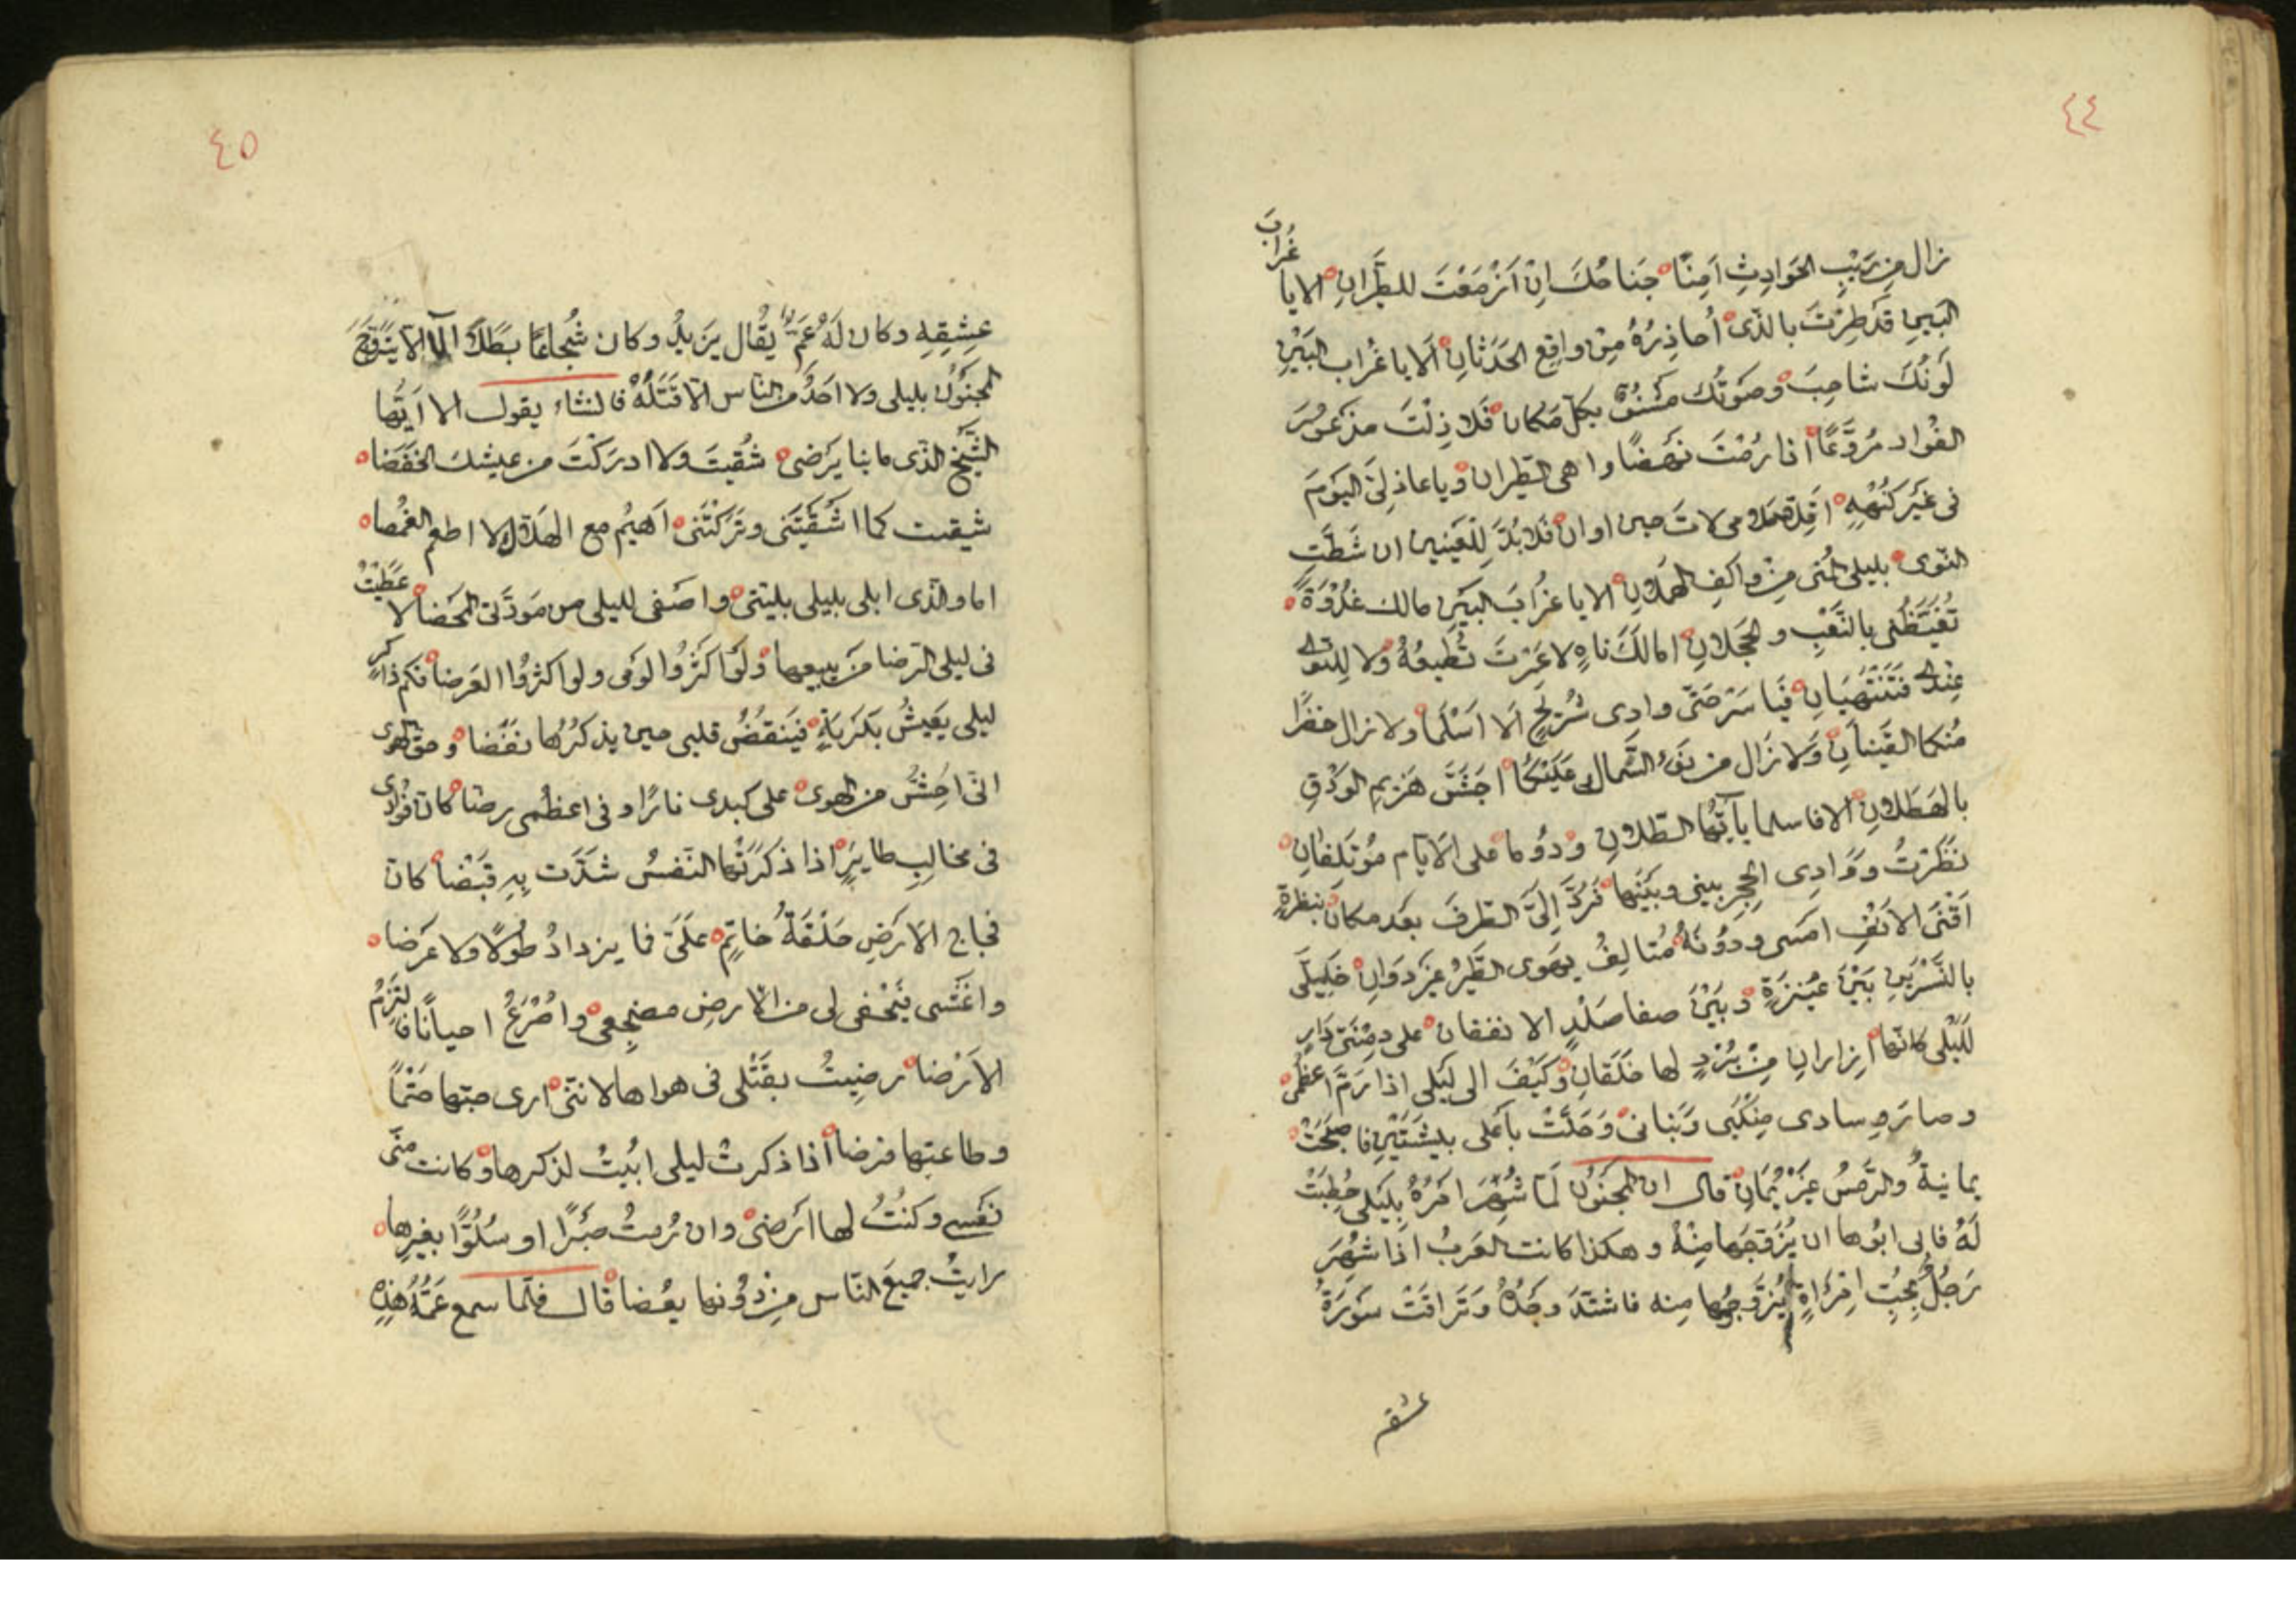 ٤٤
زال من رَيْبِ الحَوادِثِ اَمِنًا جَناحُكَ اِنْ اَزْمَعْتَ للطَّيَرانِ الايا غُرابَ
البَينِ قَد طِرْتَ بالذى أُحاذِرُهُ مِنْ واقِع الحَدَثانِ اَلا يا غُراب البَيْنِ
لَونُكَ شاحِبٌ وصَوتُك مَشنُوٌّ بكلّ مَكان فَلا زِلْتَ مذعُورَ
الفُواد مُرَوَّعًا اذا رُمْتَ نَهضًا واهى الطيران وياعاذلِىَّ اليَومَ
فى غيَر كُنْهِهِ اَقِلا ملامى لاتَ حين اوان فَلابُدَّ لِلعَينين ان شَطَّتِ
النّوى بليلى المُنى مِنْ واكِفِ الهَمَلانِ الايا غُرابَ البَينِ مالك غُدْوَةً
تُغَيّظُنى بالنَّعْبِ و الحجَلانِ امالَكَ ناهٍ لاعَزمتَ تُطيعُهُ ولا للنوى
عِندى فتَنْتَهيانِ فَيَا سَرْحَتَى وادِى سُرَيحٍ اَلا اسْلَما ولا زال خضرًا
مُنكما الفَينانِ وَلا زَال من نَوْءِ الشَّمال عَلَيْكُما اجَشَّ هَزيم الوَدْقِ
بالهَطَلانِ الافا سلما يا اَيُّها الطّللانِ ودُوما على الاَيّام مُؤتَلِفانِ
نَظَرْتُ ووَادِى الحِجرِ بينى وبَينَها فَرُدَّ اِلَىَّ الطّرفَ بعد مكان بنظرةٍ
اَقْنَى الاَنْفِ امسى ودوُنَهُ مُتالِفُ يهوى الطَّيرُ غيرَ دَوانٍ خَليلَى
بالنَّسْرَينِ بَيْنَ عنيزَةٍ وبَيْنَ صفا صَلْدٍ الا تقفان على دِمْنَتَى دَارٍ
لَلَيْلى كانّها ازاران مِنْ بُرْدٍ لها خَلَقانِ وكَيْفَ الى لَيلى اذا رَمَّ اعظُمى
وصارَ وسادى مِنْكَبى وَبَنانى وَحَلَّتْ بأعلى بليشَتَيْنِ فا صبَحَتْ
يمانيةً والرَّمْسُ غيرُ يَمانِ قال ان المجنُونَ لَمّا شُهِرَ امرُهُ بِلَيلى خُطِبَتْ
لَهُ فابى ابُوها ان يُزَوّجَها مِنْهُ وهكذا كانت العَرَبُ اذا شُهِرَ
رَجُلٌ بحُبِّ امْرَاةٍ لم يُزَوّجُوها مِنه فاشتدَّ وَجدُهُ وَتَرَاقَتْ سَورَةُ
عشقه
٤٥
عِشِقِهِ وكان لَهُ عَمّ يُقال يَزيدُ وكان شُجاعًا بطَلًا الّا الّا يَتَزَوَّجَ
المجنُونُ بليلى ولا احَدٌ من الناس الّا قَتَلَهُ فانشاء يقول الا اَيّها
الشَّيْخ الذّى ما بنا يَرضى شُقيتَ ولا ادركْتَ من عيشك الخفضا
شقيت كما اشقَيتَنى وتَركْتَنى اَهيُم مع الهلاك لا اطعم الغُمضا
اما والذّى ابلى بليلى بليّتى واصَفى لليلى من مَودَّتى المحضا لا عطيتُ
فى ليلى الرّضا مَنْ يبيعها ولَو اكثَروُا لومى ولو اكثروُا العَرضا فكم ذاكرٍ
ليلى يَعيشُ بكَرْبَةٍ فَيَنقُضُ قلبى حين يذكُرُها نفضا وحق الهوى
انّى احُسُّ من الهوى على كبدى نارًا وفى اعظُمى رضّا كانّ فؤادى
فى مخالِبِ طايرٍ اذا ذكَرتْها النّفسُ شدّت بِهِ قَبْضًا كانّ
فجاج الاَرضِ حَلَقَةُ خاتِمٍ علَىَّ فما يزدادُ طولًا ولا عَرضا
واغشى فيُحْفى لى من الارضِ مضجعى واصْرَعُ احيانًا فالتزمُ
الاَرْضا رضيتُ بقَتْلى فى هواها لانّنى ارى حبّها حَتْمًا
وطاعتها فرضا اذا ذكرتْ ليلى ابيتُ لذكرها وكانت منّى
نَفسى وكنُتُ لها ارضى وان رُمتُ صَبْرًا او سُلُوًّا بغيرها
رايتُ جميعَ النّاس من دوُنها بعضا قال فلّما سمع عَمُّهُ هٰذِهِ